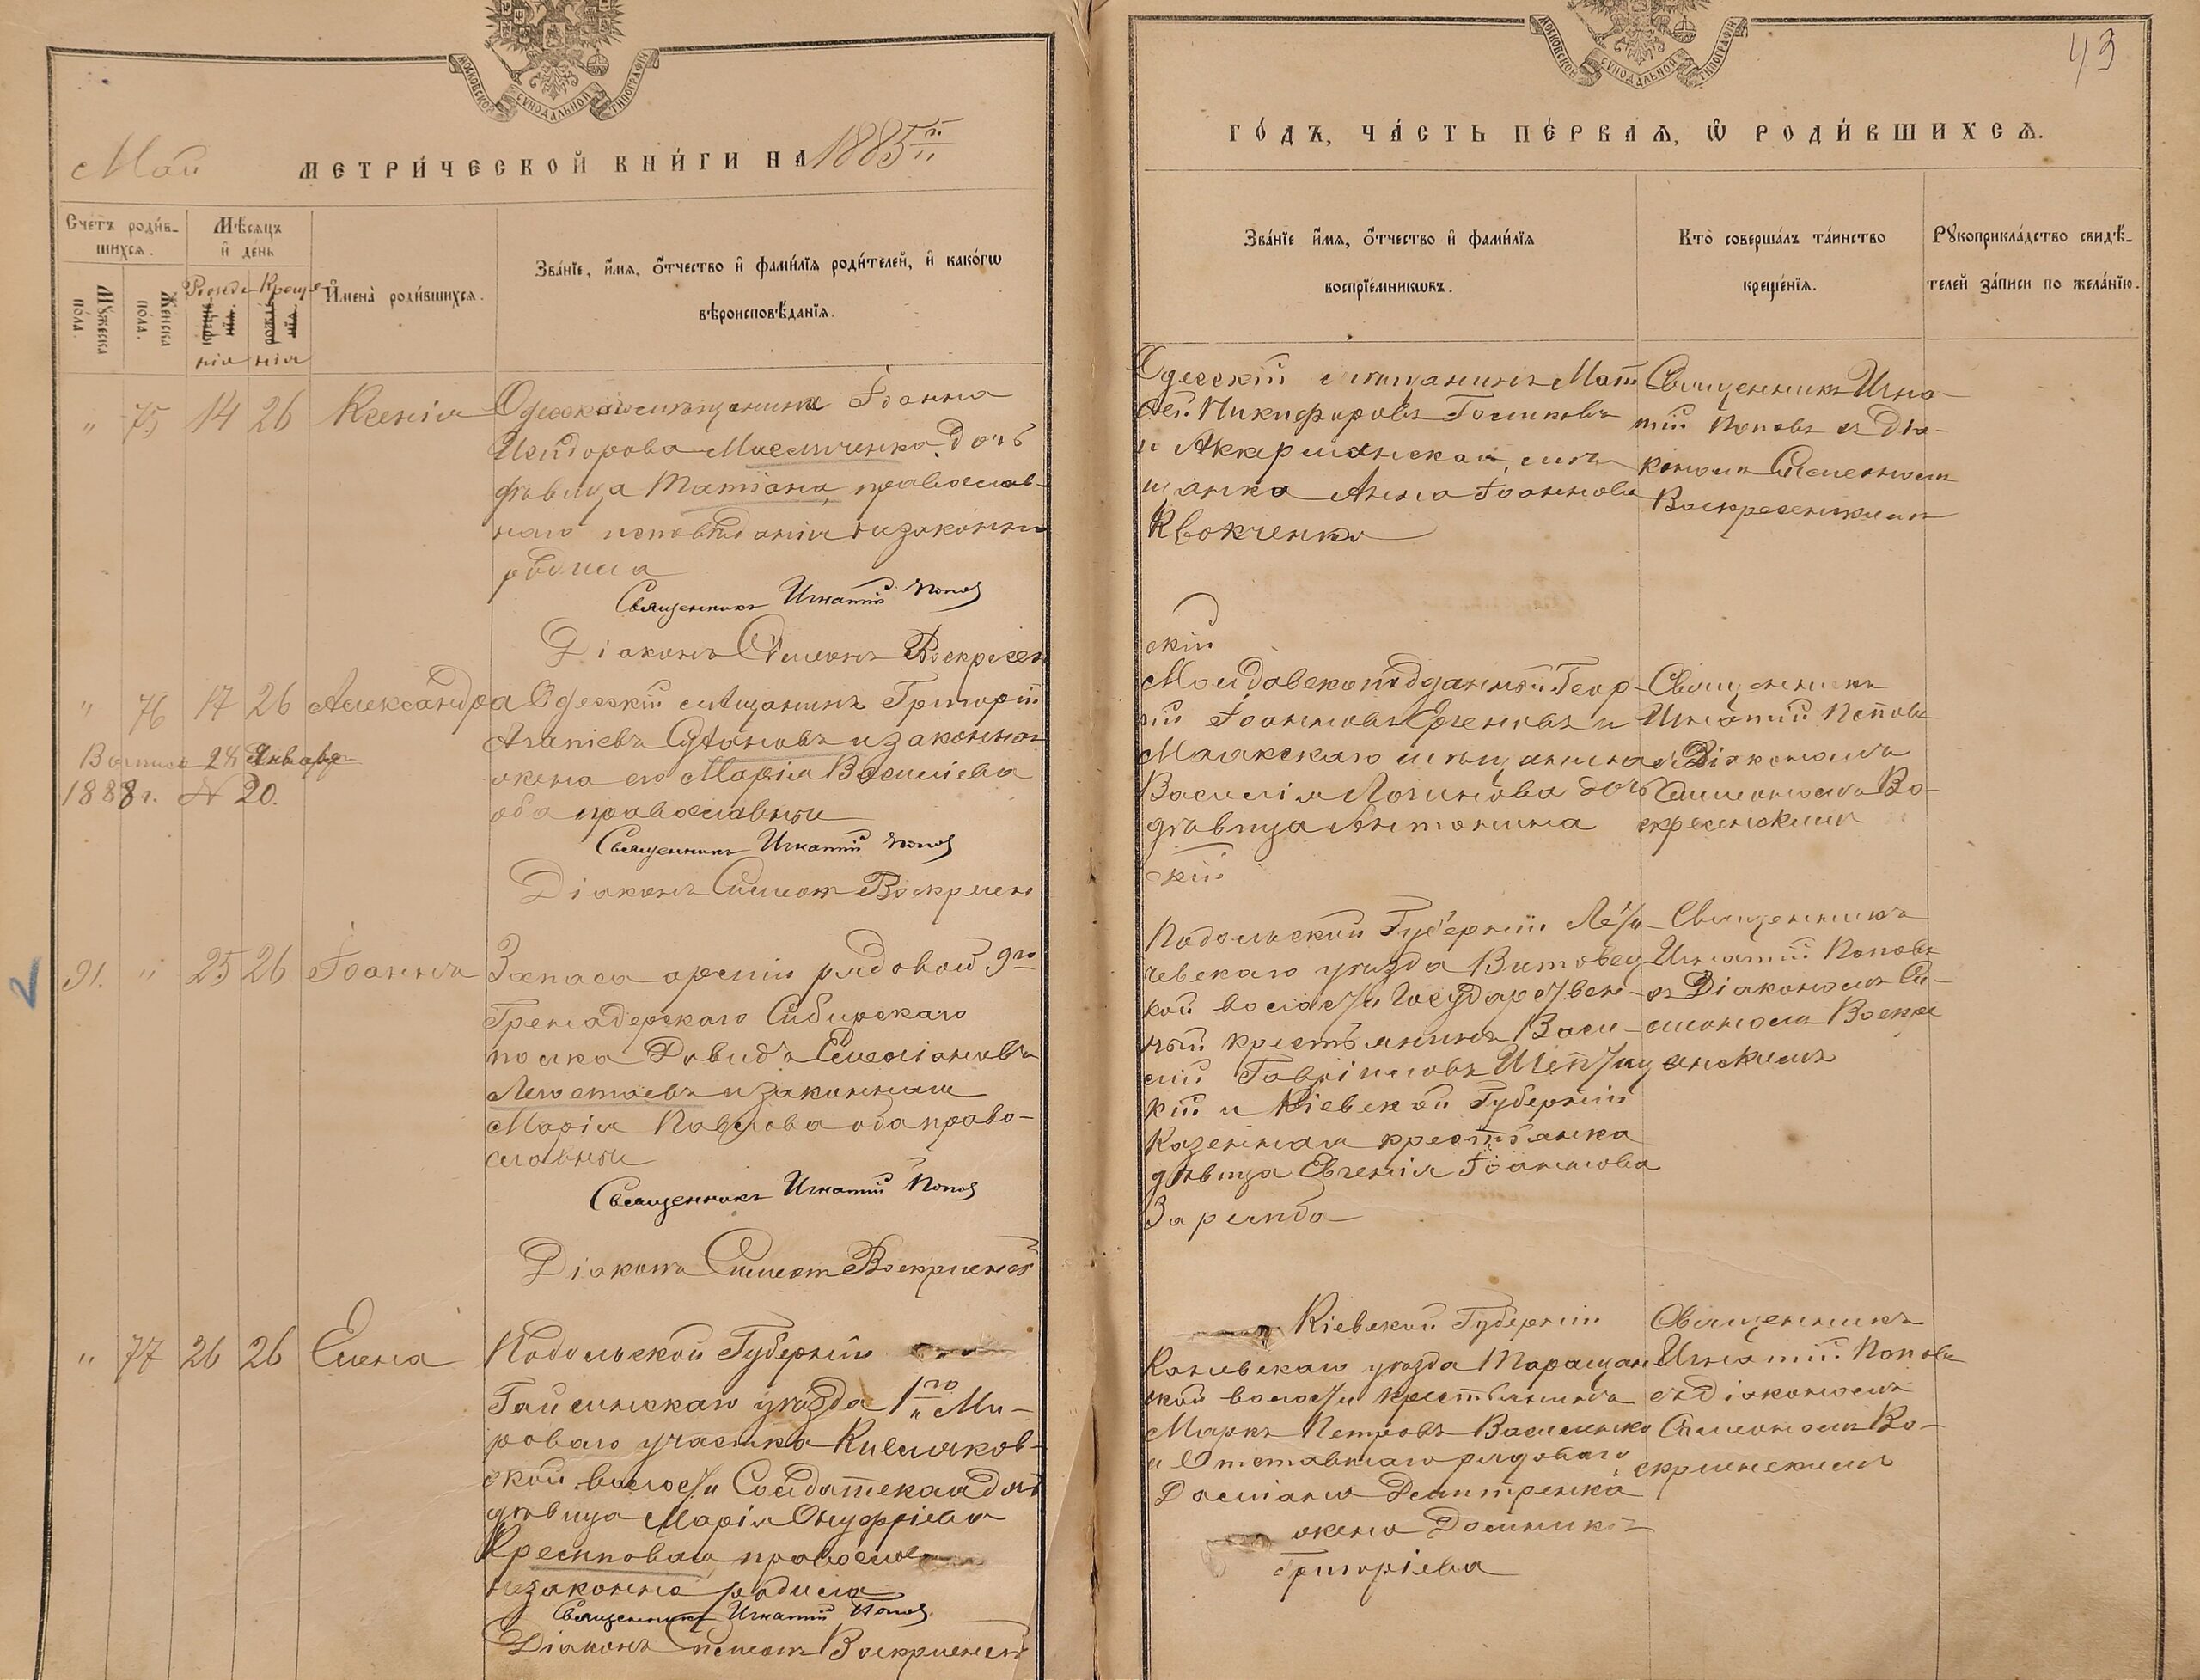 МОСКОВСКОЙ СѴНОДАЛЬНОЙ ТИПОГРАФІИ
Май МЕТРИ́ЧЕСКОЙ КНИ́ГИ НА 1885й
Сче́тъ роди́в-
шихся.
Мѣсяцъ
и҆ де́нь
Му́жеска
по́ла.
Же́нска
по́ла.
Рожде-
нія
Креще-
нія
И҆мена̀ роди́вшихся.
Зва́нїе, и҆́мя, о҆́тчество и҆ фами́лїя роди́телей, и҆ како́гѡ
вѣроисповѣ́данїя.
" 75 14 26 Ксенія
Одесскаго мѣщанина Іоанна
Исидорова Мисюченка дочь
дѣвица Татіана, православ-
наго исповѣданія незаконно
родила
Священникъ Игнатій Поповъ
Діаконъ Симеонъ Воскресен
" 76 17 26 Александра
Выпись 28 Января
1888 г. N 20.
Одесскій мѣщанинъ Григорій
Агапіевъ и законная
жена его Марія Василіева
оба православные
Священникъ Игнатій Поповъ
Діаконъ Симеонъ Воскресен
2
91. " 25 26 Іоаннъ
Запаса арміи рядовой 9го
Гренадерскаго Сибирскаго
полка Давидъ Емеліановъ
и законная
Марія Павлова оба право-
славные
Священникъ Игнатій Поповъ
Діаконъ Симеон Воскресенск
" 77 26 26 Елена
Подольской Губерніи
Гайсинскаго уѣзда 1го Ми-
роваго участка Кисляков-
ской волости Солдатская дочь
дѣвица Марія Онуфріева
православн
незаконно родила
Священникъ Игнатій Поповъ
Діаконъ Симеонъ Воскресенск
43
МОСКОВСКОЙ СѴНОДАЛЬНОЙ ТИПОГРАФІИ
ГО́ДЪ, ЧА́СТЬ ПЕ́РВАЯ, Ѡ҆ РОДИ́ВШИХСЯ.
Зва́нїе и҆́мя, о҆́тчество и҆ фами́лїя
воспрїе́мникѡвъ.
Кто̀ соверша́лъ та́инство
креще́нїя.
Рꙋкоприкла́дство свидѣ́-
телей за́писи по жела́нїю.
Одесскій мѣщанинъ Мат
Никифоровъ
и Аккерманская мѣ-
щанка Анна Іоаннова
Квокченко
Священникъ Игна-
тій Поповъ съ Діа-
кономъ Симеономъ
Воскресенскимъ
скій
Молдавскоподданный Геор-
гій Іоанновъ и
Маякскаго мѣщанина
Василія Логинова дочь
дѣвица Антонина
Священникъ
Игнатій Поповъ
съ Діакономъ
Симеономъ Во-
скресенскимъ
скій
Подольской Губерніи Лети-
чевскаго уѣзда
кой волости Государствен-
ный крестьянинъ Васи-
лій Гавріиловъ Шептиц
кій и Кіевской Губерніи
Казенная крестьянка
дѣвица Евгенія Іоаннова
Заремба
Священникъ
Игнатій Поповъ
съ Діакономъ Си-
меономъ Воскре
сенскимъ
Кіевской Губерніи
Каневскаго уѣзда Таращан
ской волости крестьянинъ
Маркъ Петровъ Василенко
и Отставнаго рядоваго
Даміана Дмитренка
жена Домникія
Григоріева
Священникъ
Игнатій Поповъ
съ Діакономъ
Симеономъ Во-
скресенскимъ